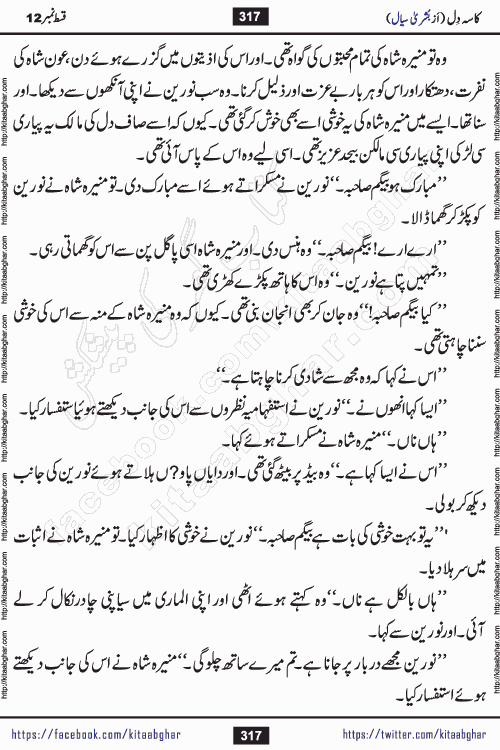 کاسہ دل (از بشریٰ سیال)
317
قسط نمبر 12
وہ تو منیرہ شاہ کی تمام محبتوں کی گواہ تھی۔ اور اس کی اذیتوں میں گزرے ہوئے دن، عون شاہ کی
نفرت، دھتکار اور اس کو ہر بار بے عزت اور ذلیل کرنا۔ وہ سب نورین نے اپنی آنکھوں سے دیکھا۔ اور
سنا تھا۔ ایسے میں منیرہ شاہ کی یہ خوشی اسے بھی خوش کر گئی تھی۔ کیوں کہ اسے صاف دل کی مالک یہ پیاری
سی لڑکی اپنی پیاری سی مالکن بیحد عزیز تھی۔ اسی لیے وہ اس کے پاس آئی تھی۔
’’مبارک ہو بیگم صاحبہ۔‘‘ نورین نے مسکراتے ہوئے اسے مبارک دی۔ تو منیرہ شاہ نے نورین
کو پکڑ کر گھما ڈالا۔
’’ارے ارے! بیگم صاحبہ۔‘‘ وہ ہنس دی۔ اور منیرہ شاہ اسی پاگل پن سے اس کو گھماتی رہی۔
’’تمہیں پتا ہے نورین۔‘‘ وہ اس کا ہاتھ پکڑے کھڑی تھی۔
’’کیا بیگم صاحبہ!‘‘ وہ جان کر بھی انجان بنی تھی۔ کیوں کہ وہ منیرہ شاہ کے منہ سے اس کی خوشی
سننا چاہتی تھی۔
’’اس نے کہا کہ وہ مجھ سے شادی کرنا چاہتا ہے۔‘‘
’’ایسا کہا انھوں نے۔‘‘ نورین نے استفہامیہ نظروں سے اس کی جانب دیکھتے ہوئیا ستفسار کیا۔
’’ہاں ناں۔‘‘ منیرہ شاہ نے مسکراتے ہوئے کہا۔
’’اس نے ایسا کہا ہے۔‘‘ وہ بیڈ پر بیٹھ گئی تھی۔ اور دایاں پاو?ں ہلاتے ہوئے نورین کی جانب
دیکھ کر بولی۔
’’یہ تو بہت خوشی کی بات ہے بیگم صاحبہ۔‘‘ نورین نے خوشی کا اظہار کیا۔ تو منیرہ شاہ نے اثبات
میں سر ہلا دیا۔
’’ہاں بالکل ہے ناں۔‘‘ وہ کہتے ہوئے اٹھی اور اپنی الماری میں سیاپنی چادر نکال کر لے
آئی۔ اور نورین سے کہا۔
’’نورین مجھے دربار پر جانا ہے۔ تم میرے ساتھ چلو گی۔‘‘ منیرہ شاہ نے اس کی جانب دیکھتے
ہوئے استفسار کیا۔
https://facebook.com/kitaabghar
317
https://twitter.com/kitaabghar
http://kitaabghar.com